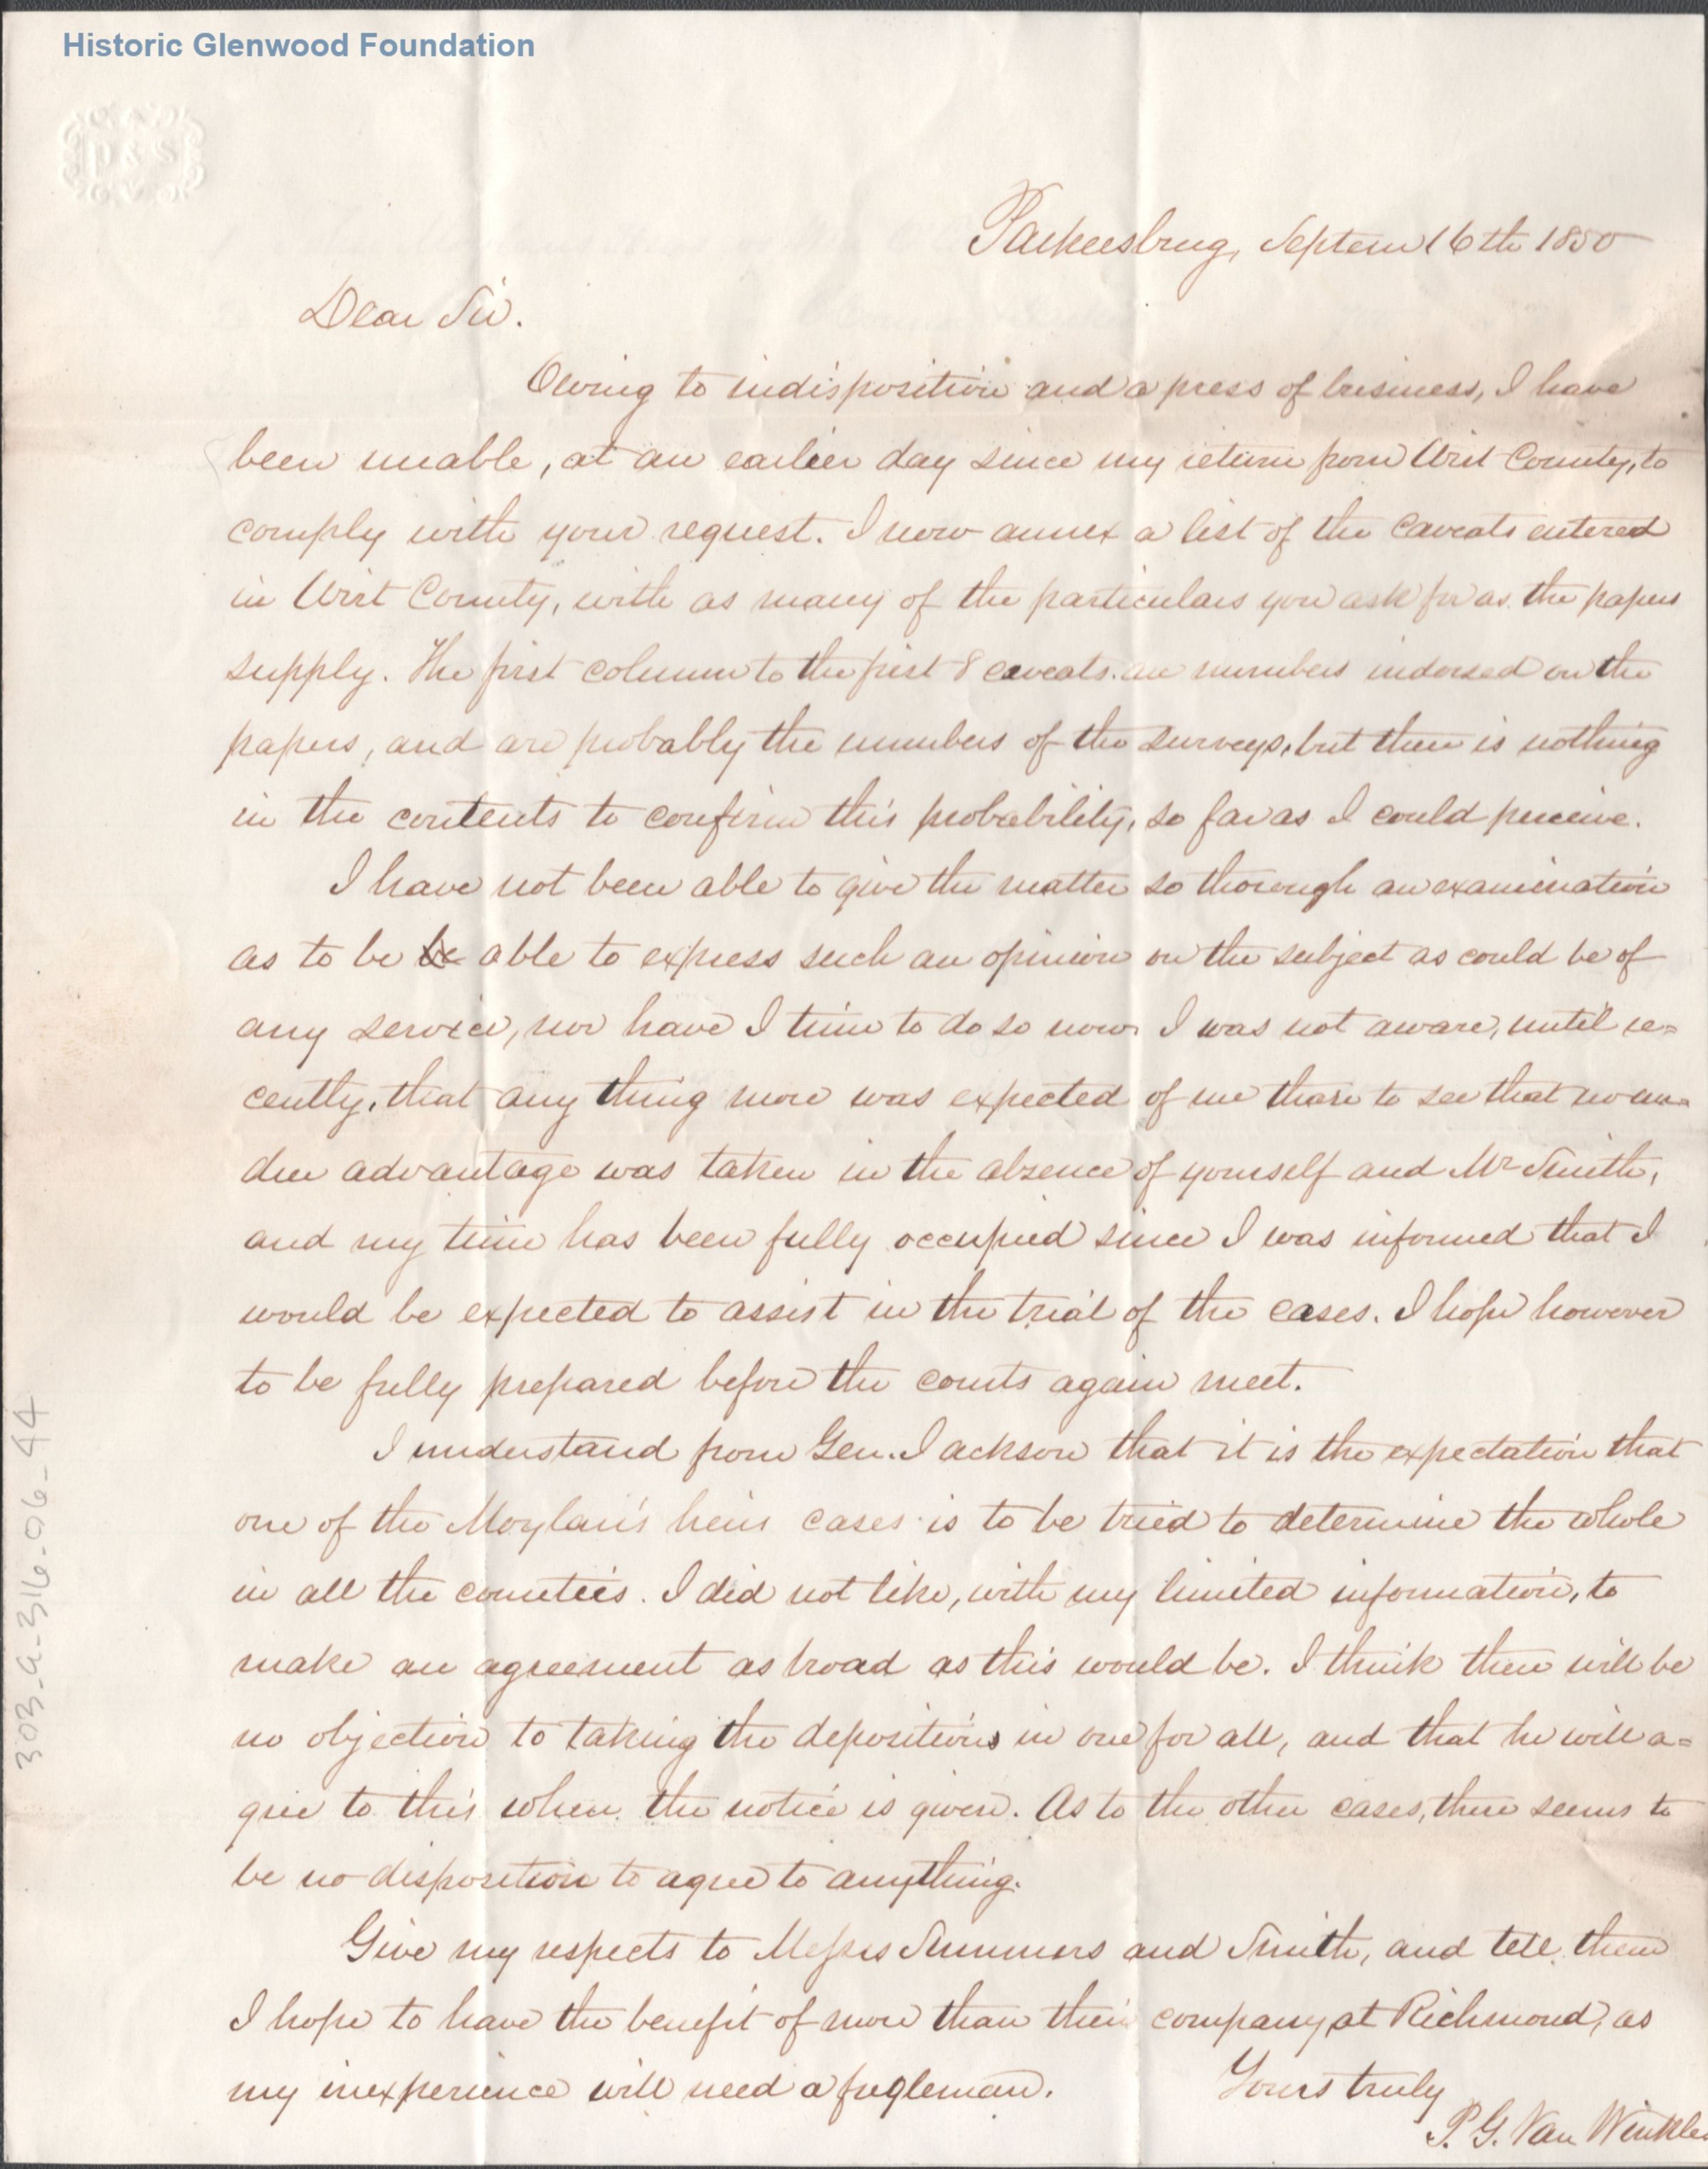 Historic Glenwood Foundation
P & S
Parkersburg, Septem 16th 1850
Dear Sir.
Owing to indisposition and a press of business, I have
been unable, at an earlier day since my return from Wirt County, to
comply with your request. I now annex a list of the caveats entered
in Wirt County, with as many of the particulars you ask for as the papers
supply. The first column to the first 8 caveats are numbers indorsed on the
papers, and are probably the numbers of the surveys, but there is nothing
in the contents to confirm this probability, so far as I could perceive.
I have not been able to give the matter so thorough an examination
as to be be able to express such an opinion on the subject as could be of
any service, nor have I time to do so now. I was not aware, until re=
cently, that any thing more was expected of me than to see that no un=
due advantage was taken in the absence of yourself and Mr Smith,
and my time has been fully occupied since I was informed that I
would be expected to assist in the trial of the cases. I hope however
to be fully prepared before the courts again meet.
I understand from Gen. Jackson that it is the expectation that
one of the Moylan's heirs cases is to be tried to determine the whole
in all the counties. I did not like, with my limited information, to
make an agreement as broad as this would be. I think there will be
no objection to taking the depositions in one for all, and that he will a=
gree to this when the notice is given. As to the other cases, there seems to
be no disposition to agree to anything.
Give my respects to Messrs Summers and Smith, and tell them
I hope to have the benefit of more than their company at Richmond, as
my inexperience will need a fugleman.
Yours truly
P. G. Van Winkle
303-a-316-06-44